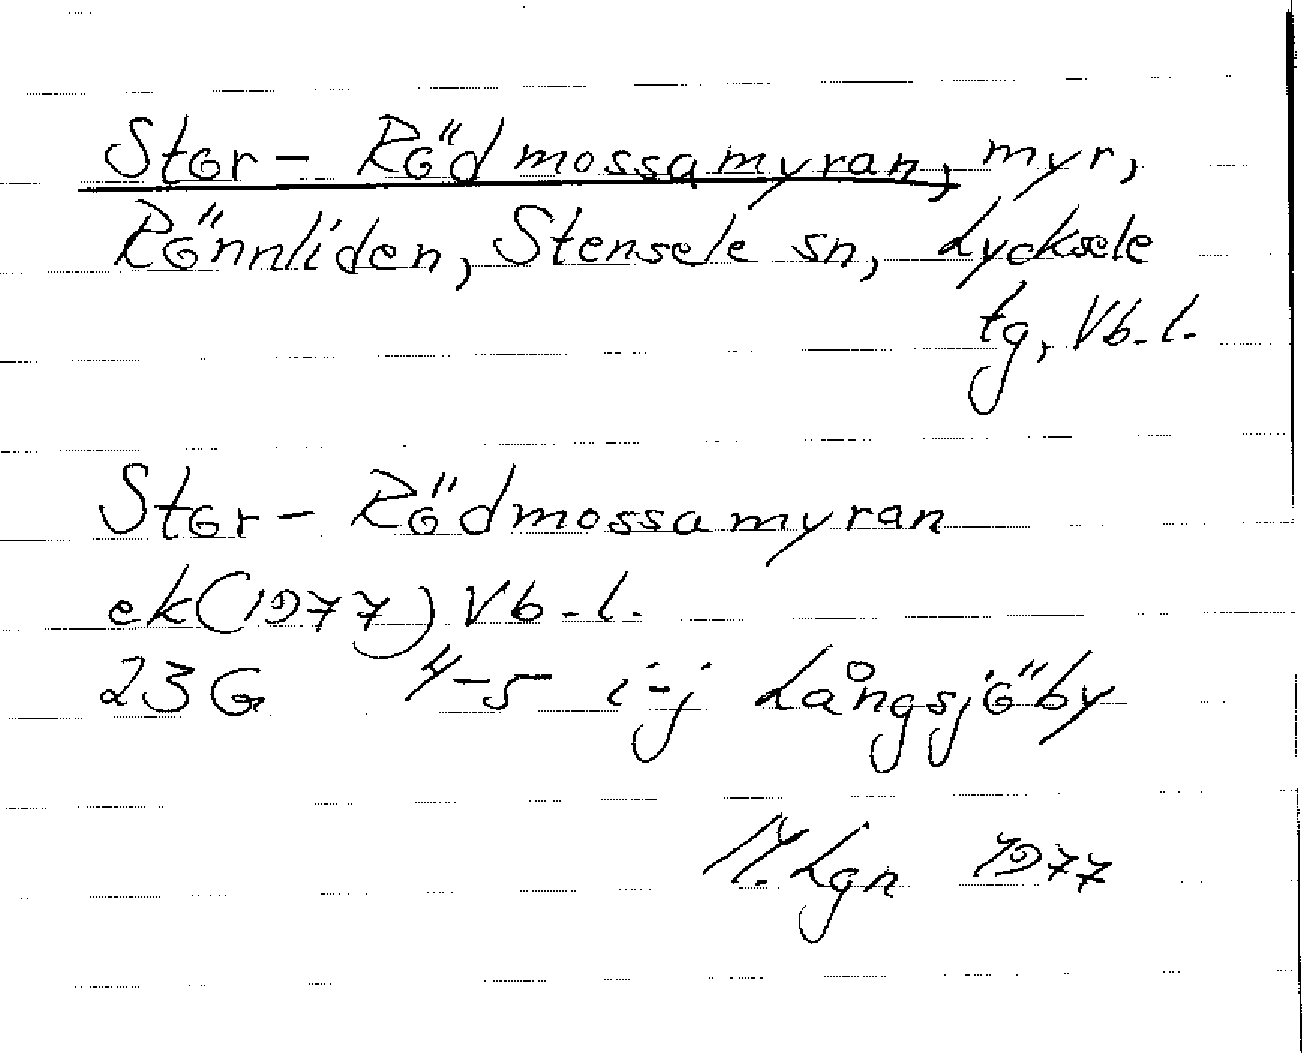 Stor-Rödmossamyran, myr,
Rönnliden, Stensele sn, Lycksele
tg, Vb.l.
Stor-Rödmossamyran
ek(1977) Vb.l.
23G 4-5 i-j Långsjöby
M. Lgn 1977